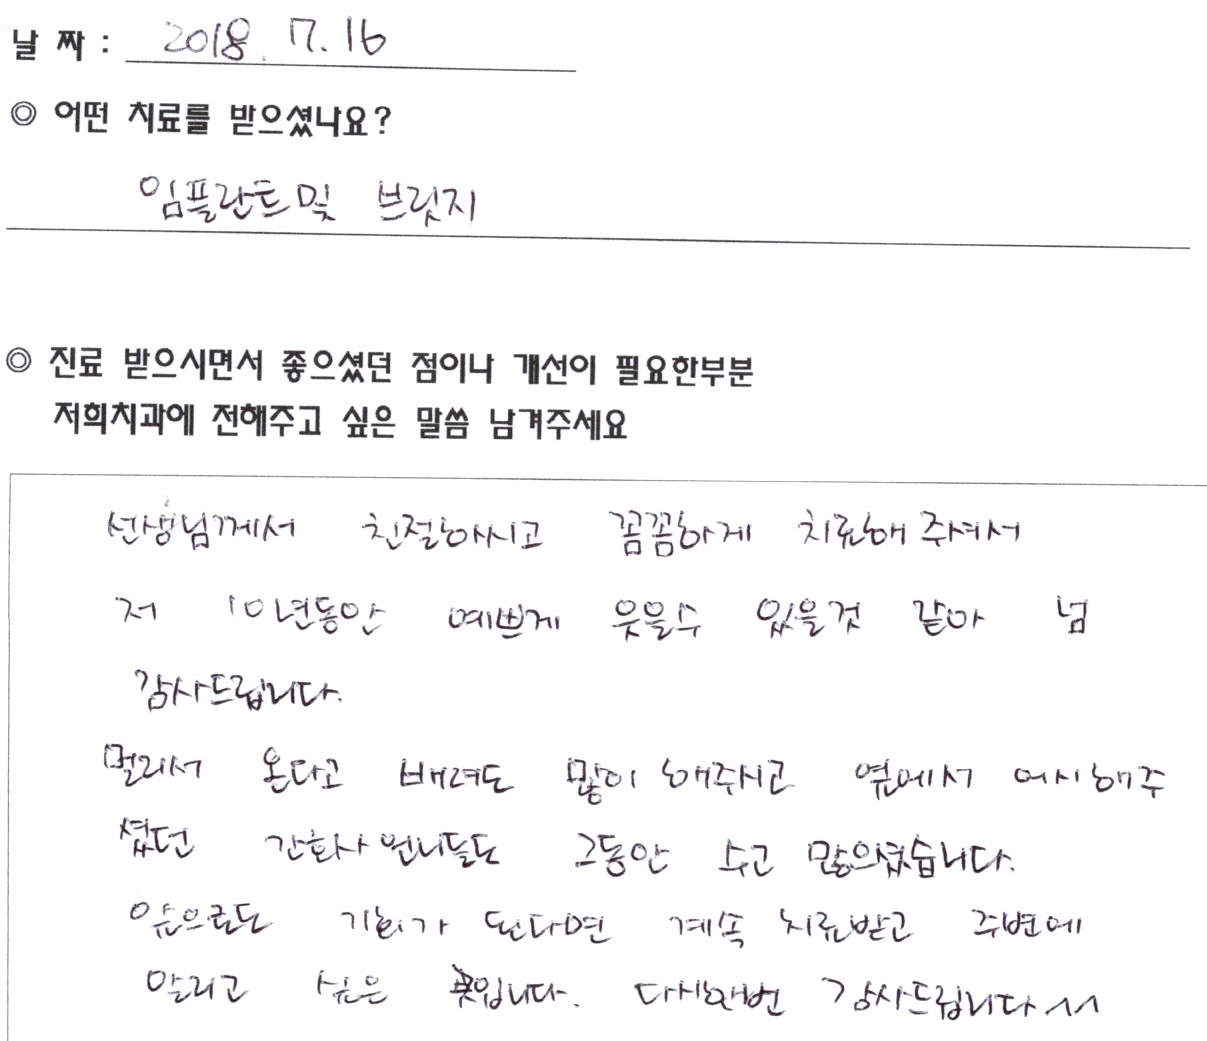 날 짜 : 2018. 7. 16
◎ 어떤 치료를 받으셨나요?
임플란트 및 브릿지
◎ 진료 받으시면서 좋으셨던 점이나 개선이 필요한부분
저희치과에 전해주고 싶은 말씀 남겨주세요
선생님께서 친절하시고 꼼꼼하게 치료해 주셔서
저 10년동안 예쁘게 웃을수 있을것 같아 넘
감사드립니다.
멀리서 온다고 배려도 많이 해주시고 옆에서 어시해주
셨던 간호사 언니들도 그동안 수고 많으셨습니다.
앞으로도 기회가 된다면 계속 치료받고 주변에
알리고 싶은 곳입니다. 다시한번 감사드립니다 ^^